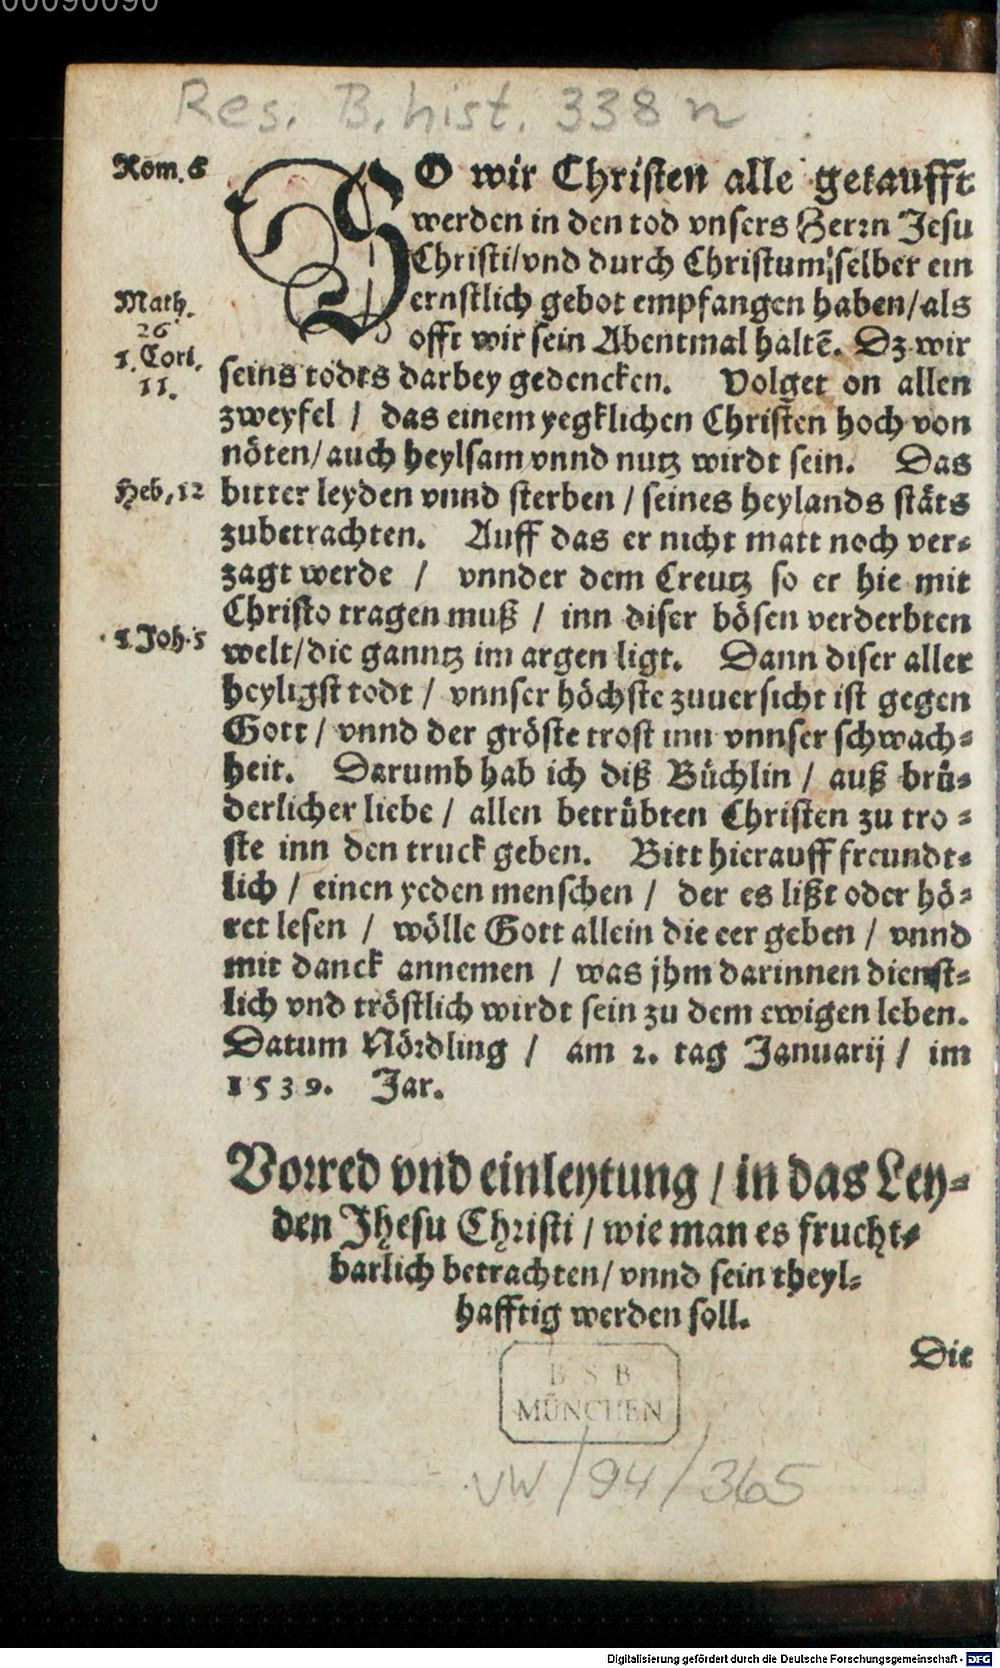 00090090
Res. B. hist. 338 n
Rom. 6
SO wir Christen alle getaufft
werden in den tod vnsers Herrn Jesu
Christi/vnd durch Christum selber ein
Math.
26
ernstlich gebot empfangen haben/als
offt wir sein Abentmal haltē. Dz wir
1. Cori.
11.
seins todts darbey gedencken. Volget on allen
zweyfel / das einem yegklichen Christen hoch von
nöten/auch heylsam vnnd nutz wirdt sein. Das
Heb. 12
bitter leyden vnnd sterben / seines heylands stäts
zubetrachten. Auff das er nicht matt noch ver-
zagt werde / vnnder dem Creutz so er hie mit
Christo tragen muß / inn diser bösen verderbten
1. Joh. 5
welt/die ganntz im argen ligt. Dann diser aller
heyligst todt / vnnser höchste zuuersicht ist gegen
Gott / vnnd der gröste trost inn vnnser schwach-
heit. Darumb hab ich diß Büchlin / auß brü-
derlicher liebe / allen betrübten Christen zu tro-
ste inn den truck geben. Bitt hierauff freundt-
lich / einen yeden menschen / der es lißt oder hö-
ret lesen / wölle Gott allein die eer geben / vnnd
mit danck annemen / was jhm darinnen dienst-
lich vnd tröstlich wirdt sein zu dem ewigen leben.
Datum Nördling / am 2. tag Januarij / im
1539. Jar.
Vorred vnd einleytung / in das Ley-
den Jhesu Christi / wie man es frucht-
barlich betrachten/ vnnd sein theyl-
hafftig werden soll.
Die
B S B
MÜNCHEN
VW/94/365
Digitalisierung gefördert durch die Deutsche Forschungsgemeinschaft - DFG